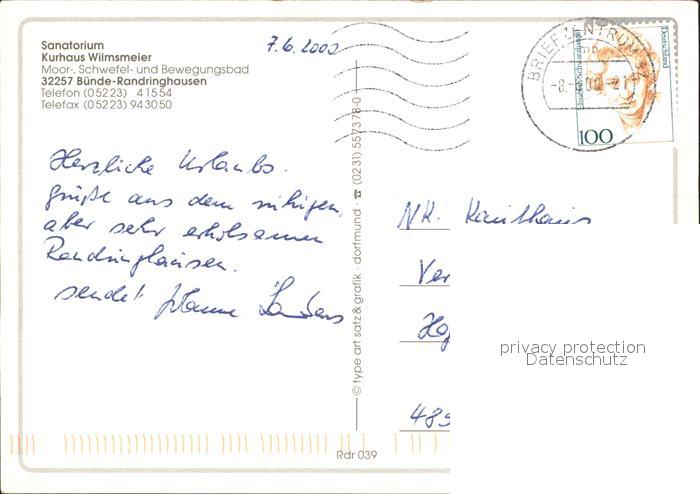 Sanatorium
Kurhaus Wilmsmeier
Moor-, Schwefel- und Bewegungsbad
32257 Bünde-Randringhausen
Telefon (05223) 41554
Telefax (05223) 943050
7.6.2000
Herzliche Urlaubs-
grüße aus dem ruhigen,
aber sehr erholsamen
Randringhausen.
sendet Hanne
© type art satz & grafik · dortmund · ☎ (0231) 557378-0
BRIEFZENTRUM
-8.-6.00-21
Deutschland
Elisabeth Schwarzhaupt
100
NK. Kaufhaus
Ver
485
privacy protection
Datenschutz
Rdr 039